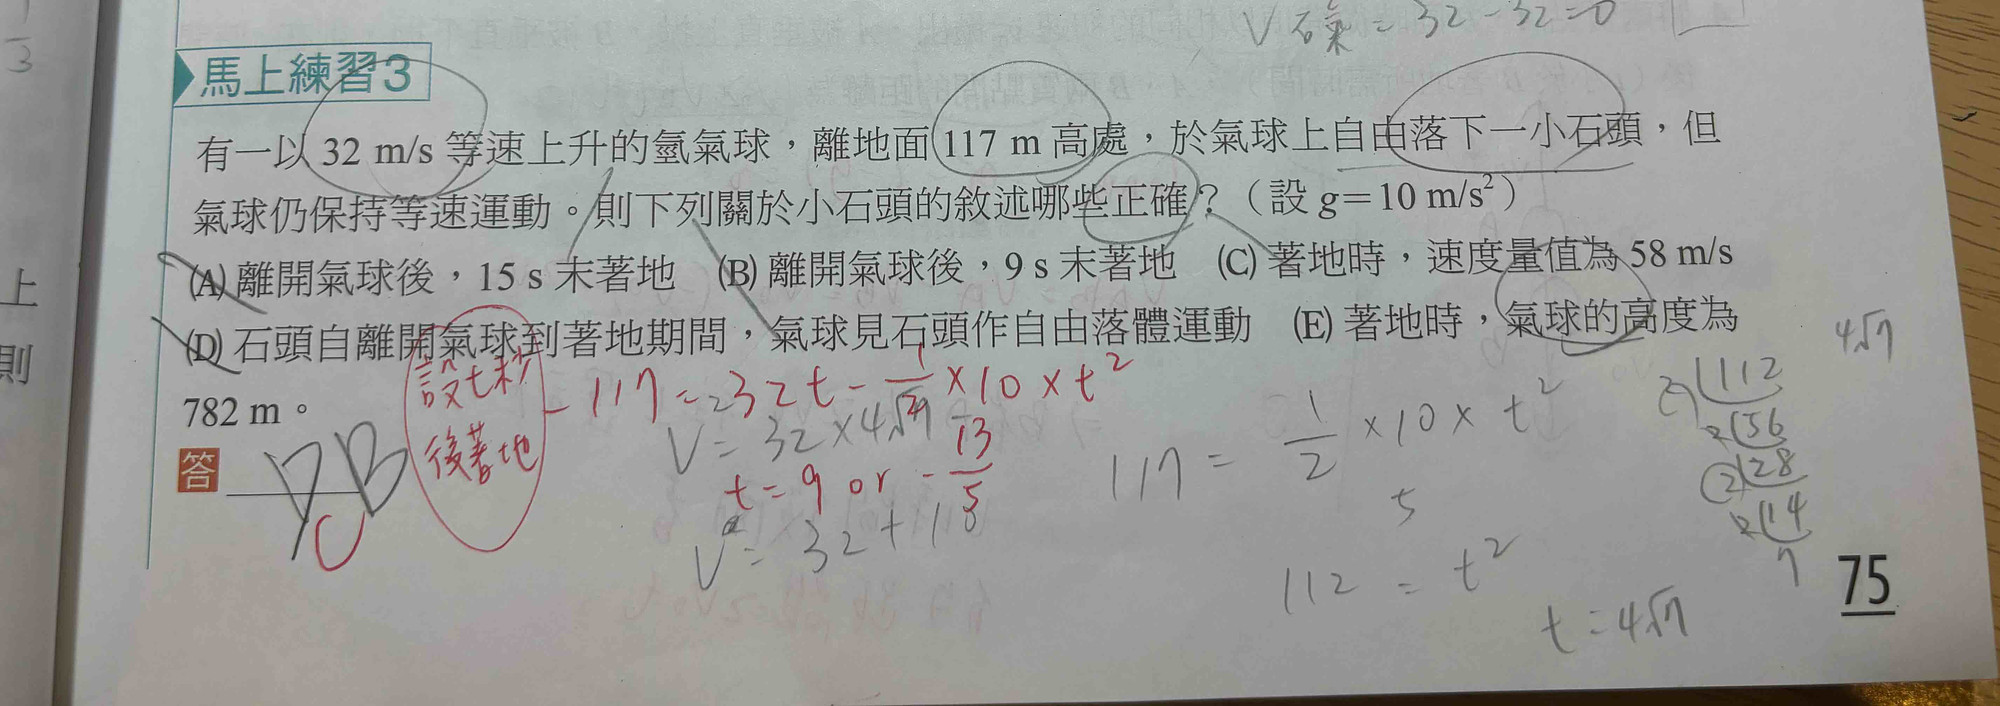 V石氣 = 32 - 32 = 0
1
3
馬上練習3
有一以 32 m/s 等速上升的氫氣球，離地面 117 m 高處，於氣球上自由落下一小石頭，但
氣球仍保持等速運動。則下列關於小石頭的敘述哪些正確？（設 g＝10 m/s²）
(A) 離開氣球後，15 s 末著地 (B) 離開氣球後，9 s 末著地 (C) 著地時，速度量值為 58 m/s
(D) 石頭自離開氣球到著地期間，氣球見石頭作自由落體運動 (E) 著地時，氣球的高度為
782 m。
上
則
答
DB
C
設t秒
後著地
-117 = 32t - 1/2 × 10 × t²
V = 32 × 4√7
t = 9 or - 13/5
V = 32 + 10
117 = 1/2 × 10 × t²
5
112 = t²
t = 4√7
4√7
2 112
2 56
2 28
2 14
7
75